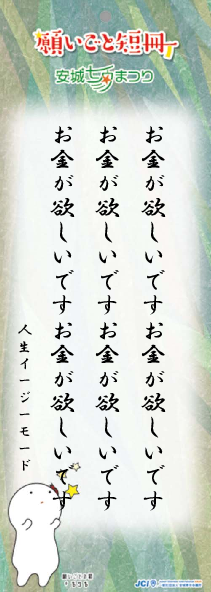 願いごと短冊
安城七夕まつり
お金が欲しいですお金が欲しいです
お金が欲しいですお金が欲しいです
お金が欲しいですお金が欲しいです
人生イージーモード
JCI